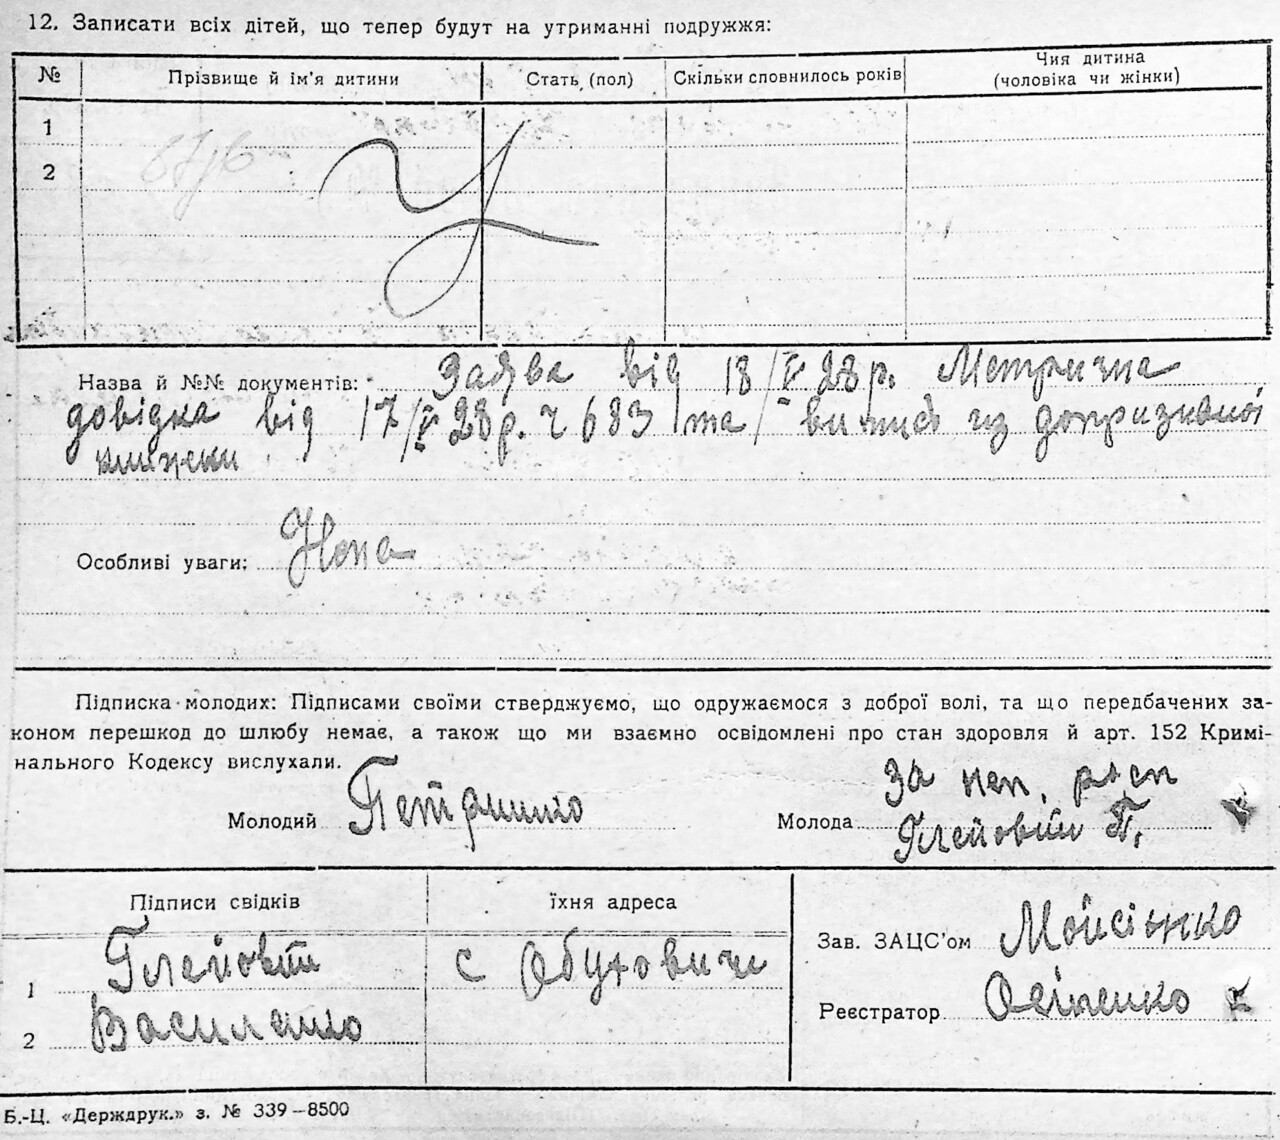 12. Записати всіх дітей, що тепер будут на утриманні подружжя:
№ Прізвище й ім'я дитини Стать (пол) Скільки сповнилось років Чия дитина (чоловіка чи жінки)
1
2
Назва й №№ документів: Заява від 18/V 28 р. Метрична
довідка від 17/V 28 р. ч 683 та випись из допризивної
книжки
Особливі уваги:
Підписка молодих: Підписами своїми стверджуємо, що одружаємося з доброї волі, та що передбачених за-
коном перешкод до шлюбу немає, а також що ми взаємно освідомлені про стан здоровля й арт. 152 Кримі-
нального Кодексу вислухали.
За неп. росп
Молодий Петрашко Молода Глейовій П.
Підписи свідків їхня адреса
Зав. ЗАЦС'ом Мойсієнко
1 Глейовій с Обуховичи
Реєстратор Осіпенко
2 Василенко
Б.-Ц. «Держдрук.» з. № 339–8500